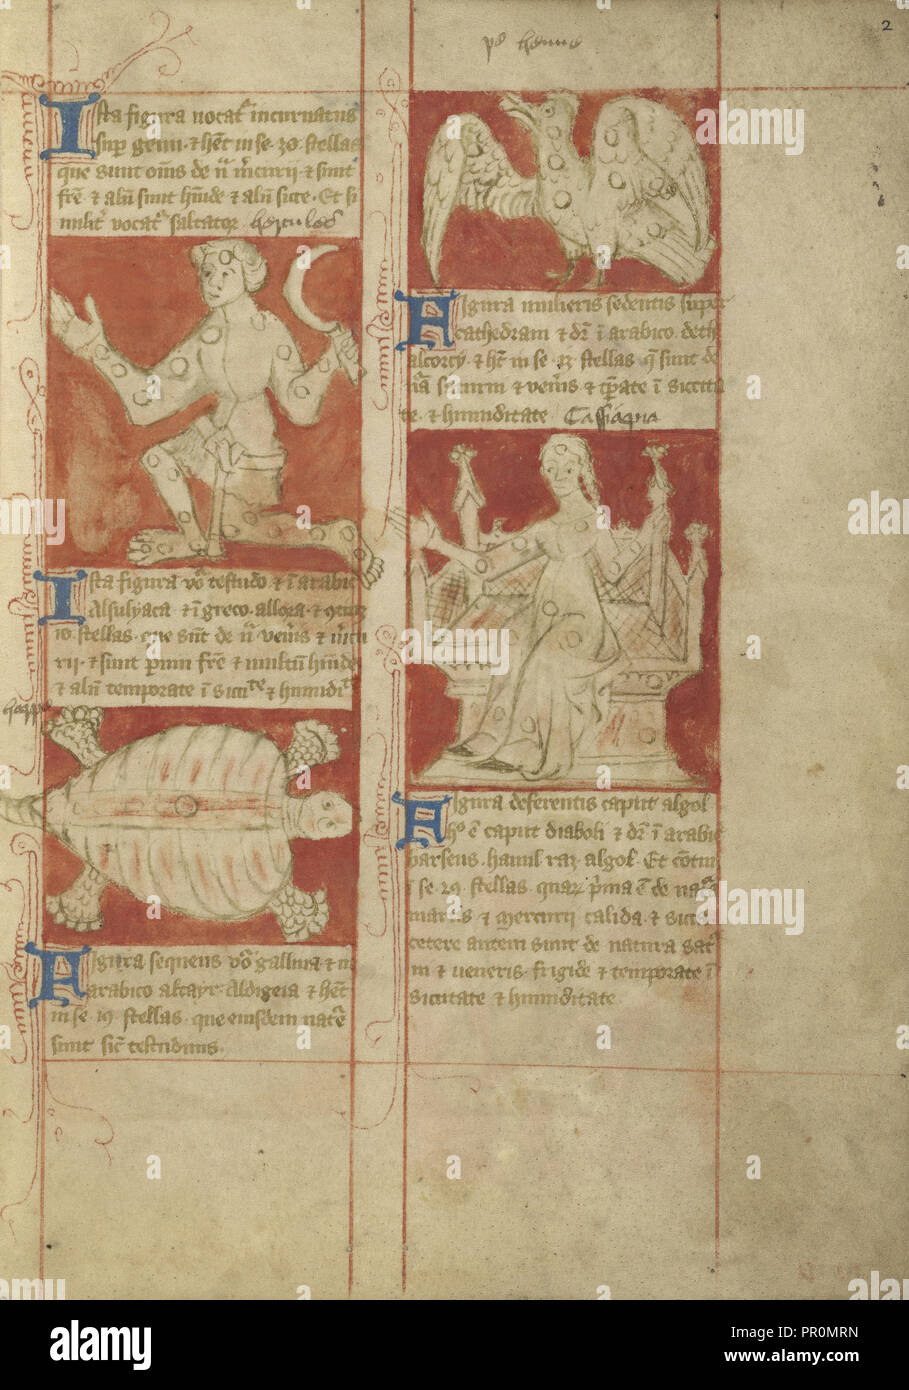 2
pe henne
Ista figura vocatᷣ incurvatus
suꝑ genu ⁊ hēt in se 30 stellas
que sunt oīns de nᷓ mercurii ⁊ sunt
frē ⁊ alīn sunt hūide ⁊ alīn sicce. Et si
militᷣ vocatᷣ saltator hercules
Ista figura vōᷣ testudo ⁊ ī arabic
Alsulyaca ⁊ ī greco allora ⁊ 
10 stellas que sūt de nᷓ venīs ⁊ m̄cu
rii ⁊ sunt frē ⁊ multū hūide
⁊ alīn temporate ī siccite ⁊ humidite
Figura sequens vōᷣ gallina ⁊ in
arabico altayr Aldigeia ⁊ hēt
in se 19 stellas que eiusdem natᷓe
sunt sic̄ testudinis.
Figura mulieris sedentis super
cathedram ⁊ dr̄ ī arabico deth
alcorcy ⁊ hēt in se 13 stellas q̄ sunt de
nᷓa saturni ⁊ venīs ⁊ tꝑate ī siccita
te ⁊ humiditate Cassiopia
Figura deferentis caput algol
hᵒ ē caput diaboli ⁊ dr̄ ī arabic
barseus hamil raz algol Et cōtin
ī se 29 stellas quaꝝ p̄ma ē de natᷓa
martis ⁊ mercurii calida ⁊ sicca
cetere autem sunt de natura satᷣ
ni ⁊ veneris frigide ⁊ temporate ī
siccitate ⁊ humiditate
alamy
Image ID: PR0MRN
www.alamy.com